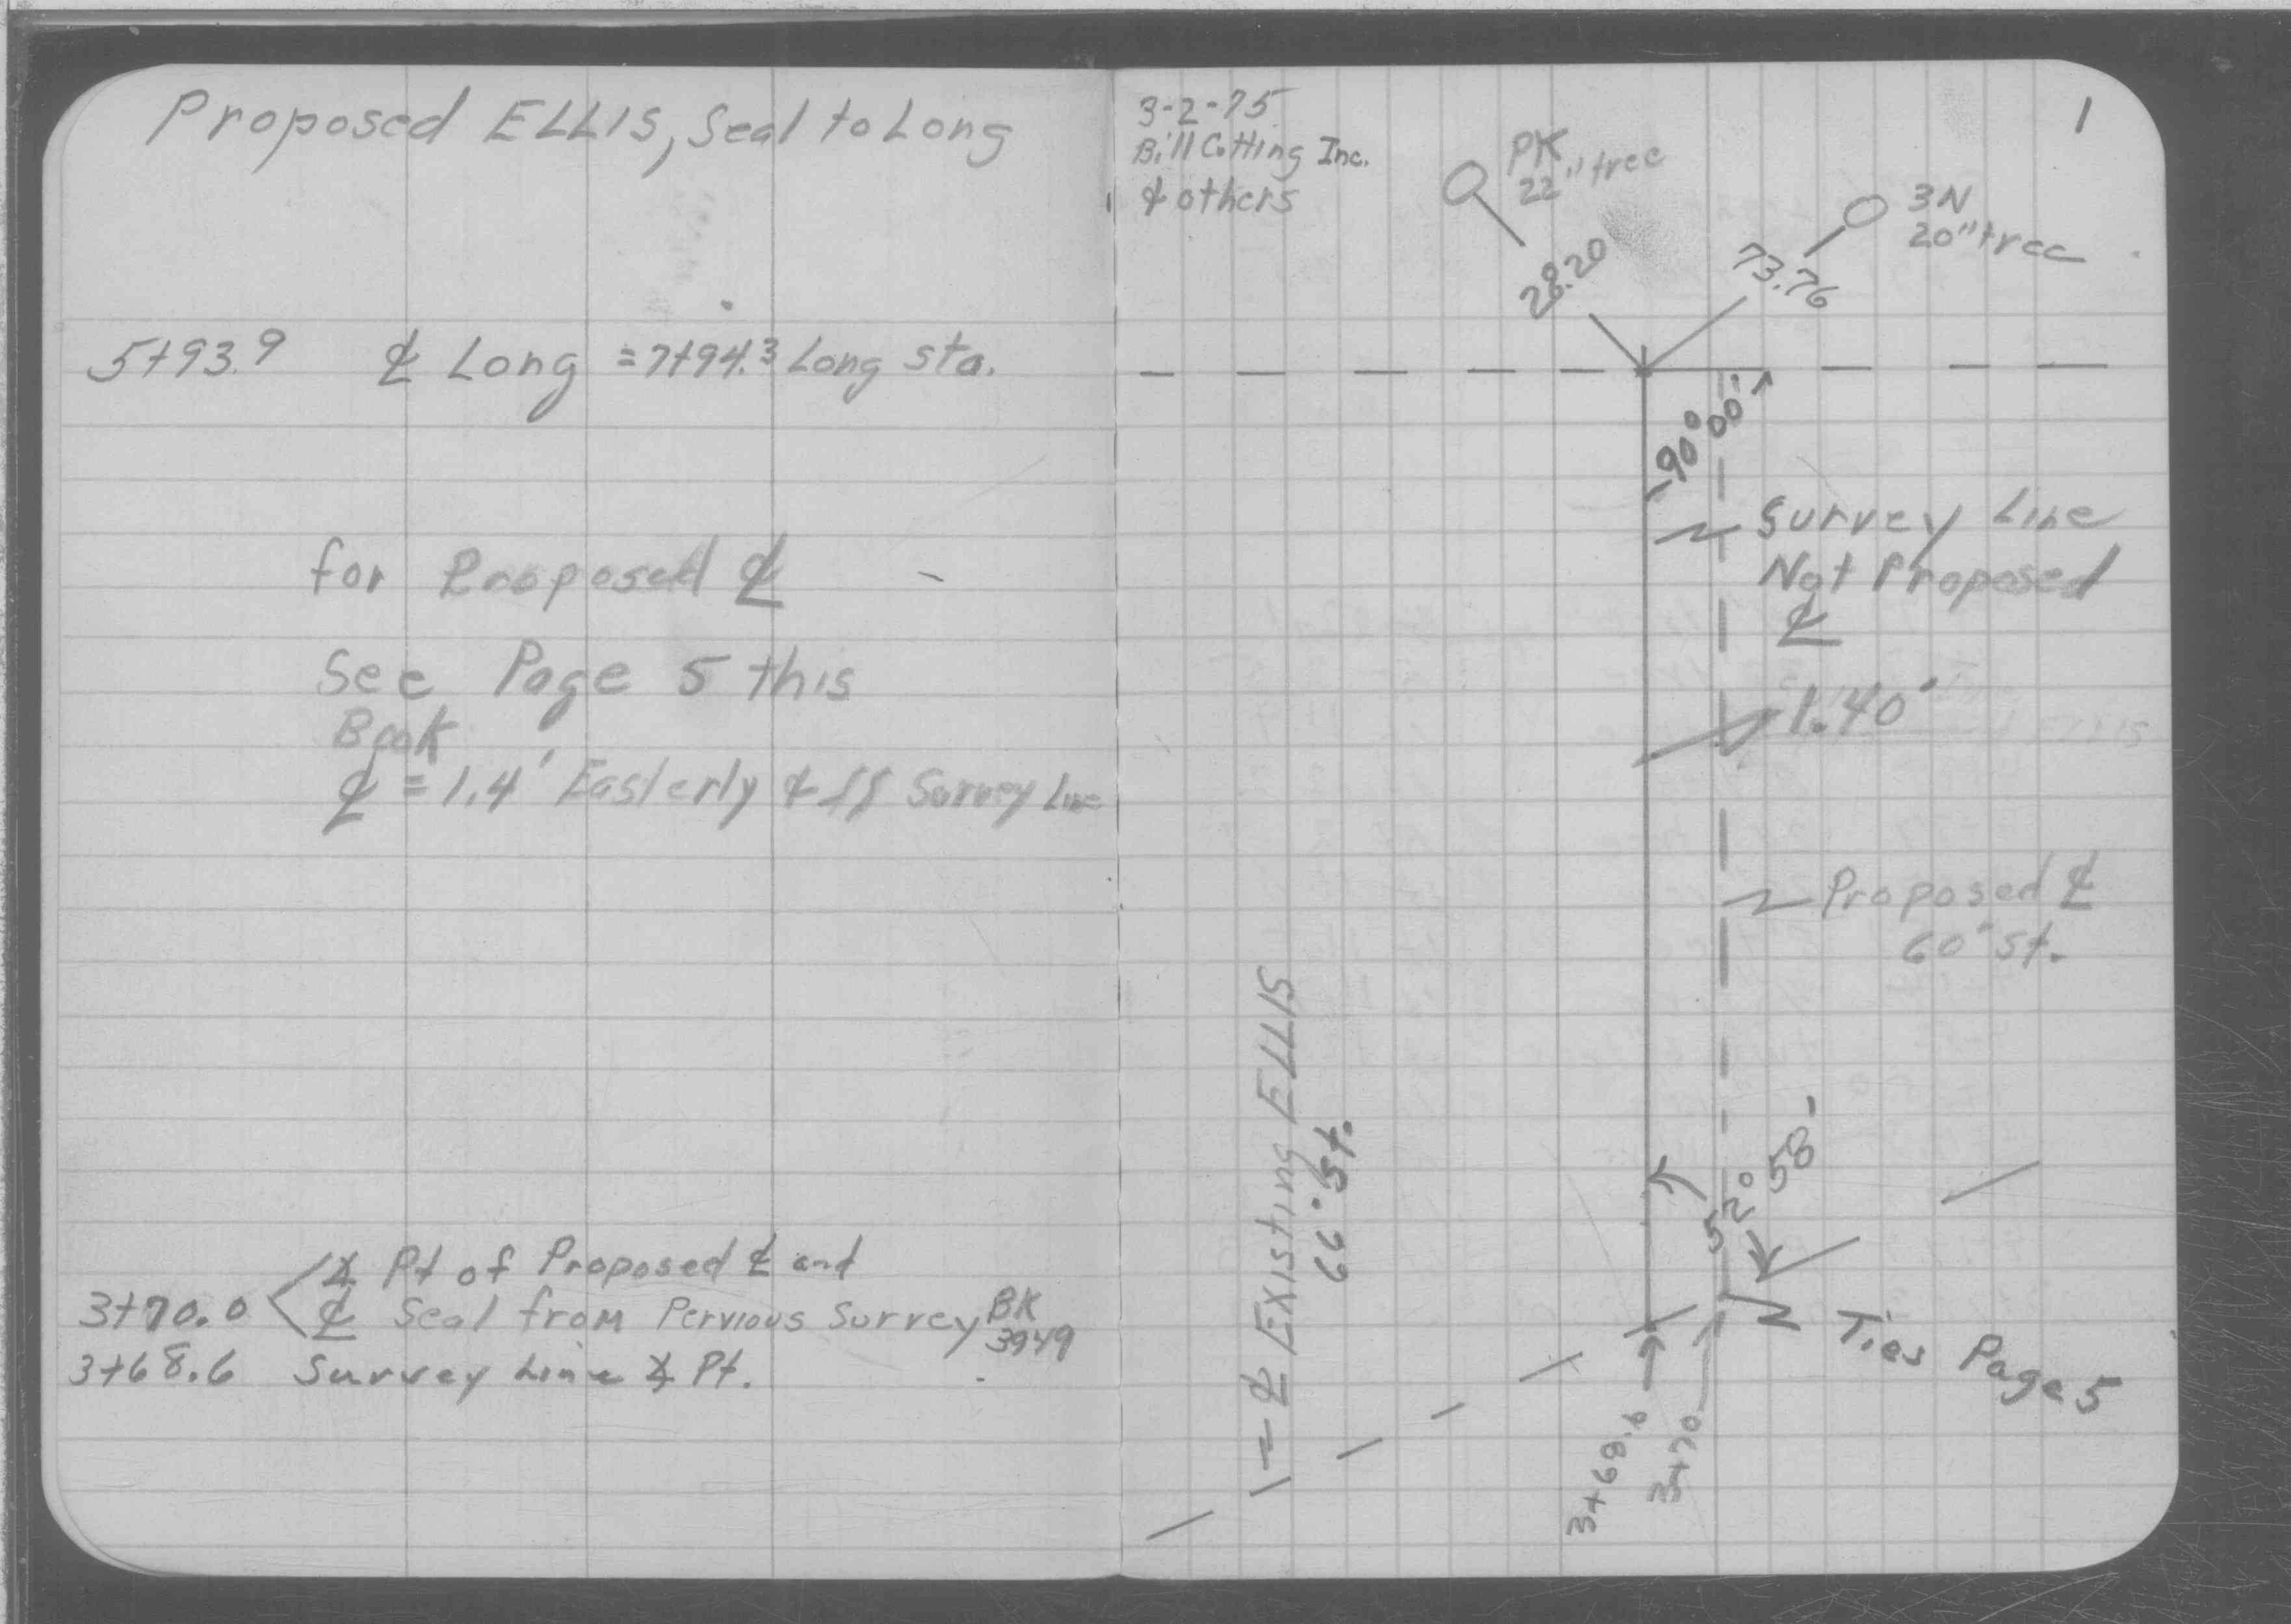 Proposed ELLIS, Seal to Long
5+93.9 ℄ Long = 7+94.3 Long sta.
for Proposed ℄
See Page 5 this
Book
℄ = 1.4' Easterly & // Survey Line
∡ Pt of Proposed ℄ and
3+70.0 ℄ Seal from Pervious Survey BK
3949
3+68.6 Survey Line ∡ Pt.
1
3-2-75
Bill Cotting Inc.
& others
PK
22" tree
3N
20" tree
28.20
73.76
90° 00'
Survey Line
Not Proposed
℄
1.40'
Proposed ℄
60' St.
℄ Existing ELLIS
66' St.
52° 58'
Ties Page 5
3+68.6
3+70